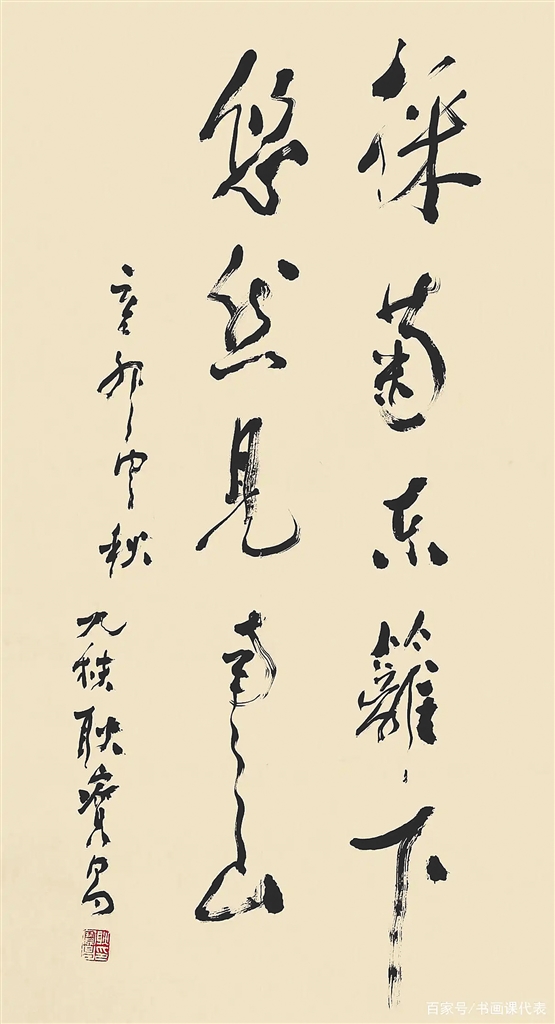 採菊东籬下
悠然見南山
辛卯中秋
九秩耿寶昌
百家号/书画课代表